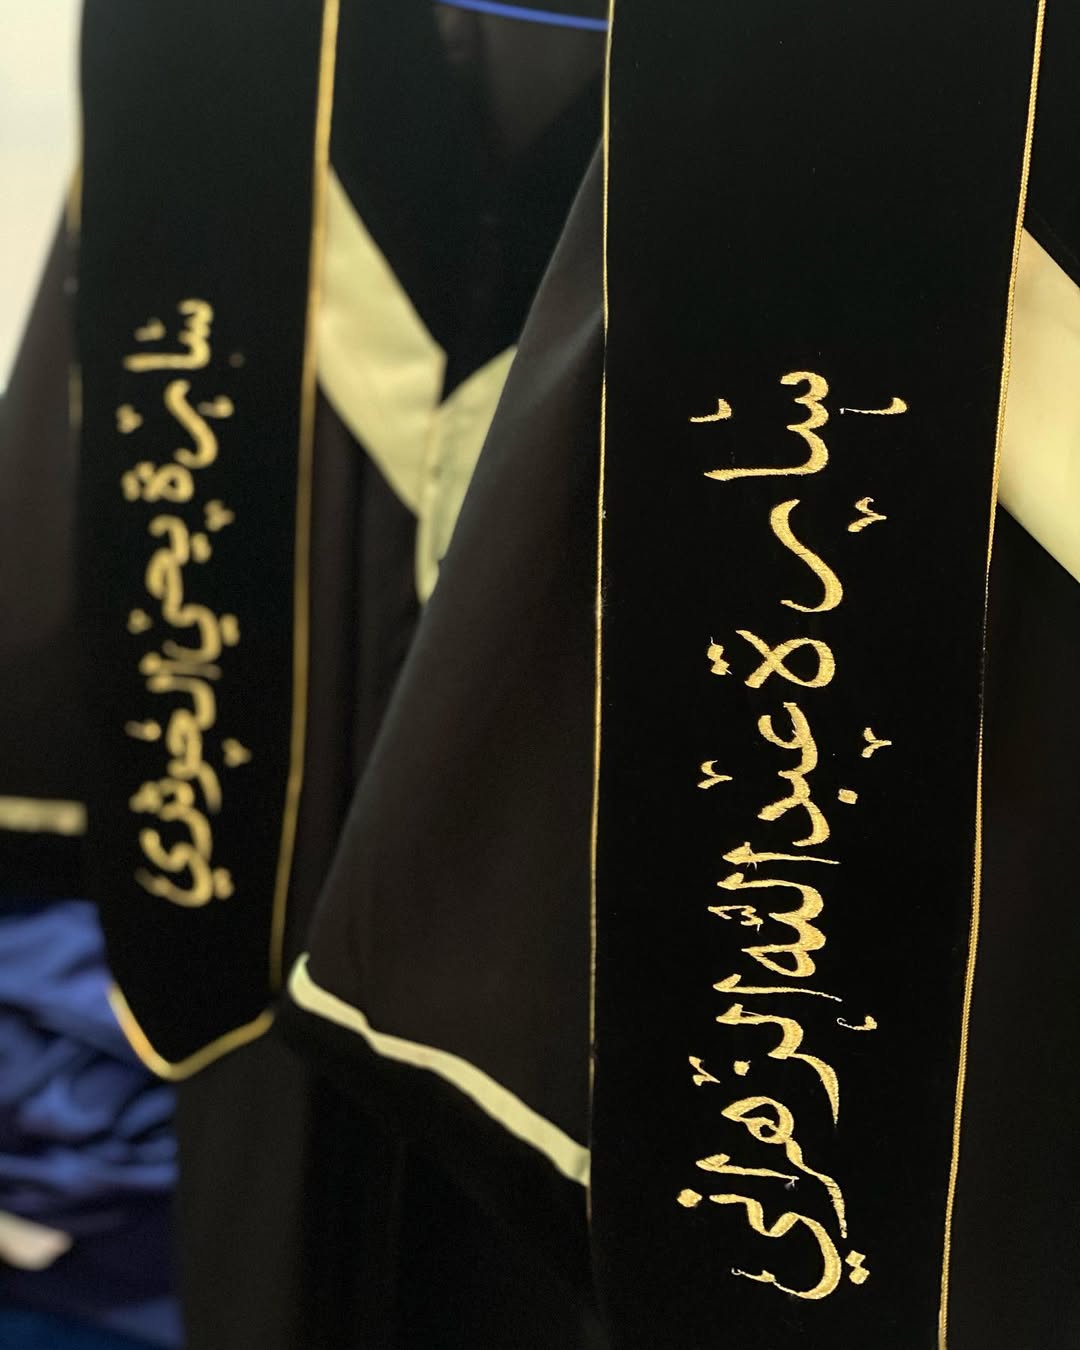 سارة عبدالله الزهراني
سارة يحيى